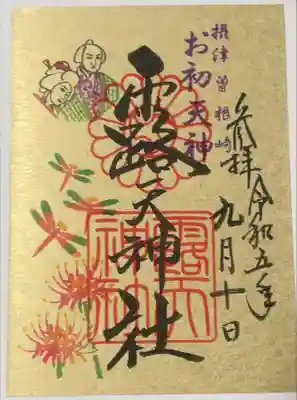 奉拝 令和五年
九月十日
摂津曽根崎
お初天神
露天神社
露天
神社